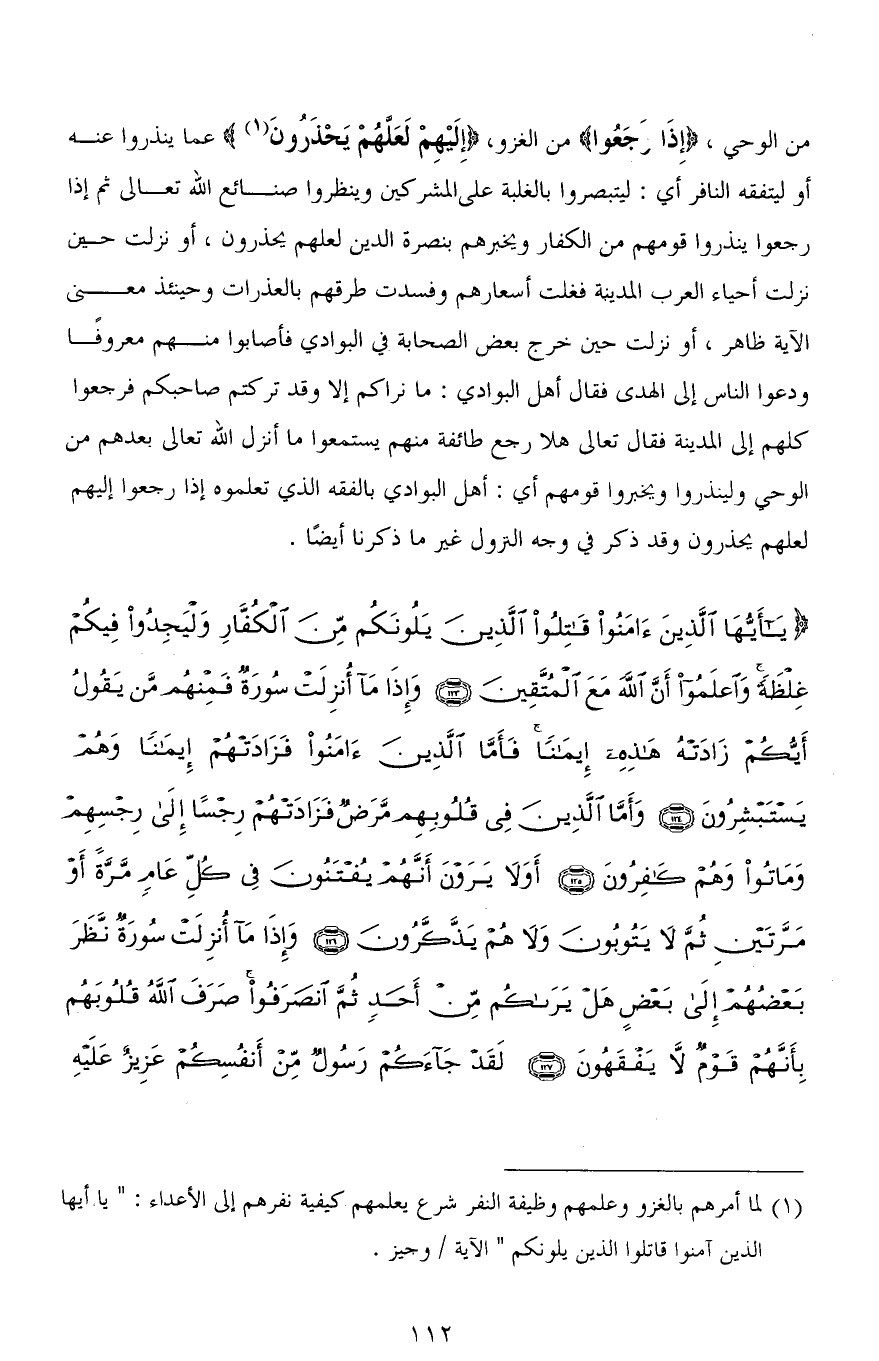 من الوحي ، ﴿إِذَا رَجَعُوا﴾ من الغزو، ﴿إِلَيْهِمْ لَعَلَّهُمْ يَحْذَرُونَ(١) ﴾ عما ينذروا عنـــه
أو ليتفقه النافر أي : ليتبصروا بالغلبة على المشركين وينظروا صنـــائع الله تعـــالى ثم إذا
رجعوا ينذروا قومهم من الكفار ويخبرهم بنصرة الدين لعلهم يحذرون ، أو نزلت حـين
نزلت أحياء العرب المدينة فغلت أسعارهم وفسدت طرقهم بالعذرات وحينئذ معـــــنى
الآية ظاهر ، أو نزلت حين خرج بعض الصحابة في البوادي فأصابوا منــــهم معروفًــا
ودعوا الناس إلى الهدى فقال أهل البوادي : ما نراكم إلا وقد تركتم صاحبكم فرجعوا
كلهم إلى المدينة فقال تعالى هلا رجع طائفة منهم يستمعوا ما أنزل الله تعالى بعدهم من
الوحي ولينذروا ويخبروا قومهم أي : أهل البوادي بالفقه الذي تعلموه إذا رجعوا إليهم
لعلهم يحذرون وقد ذكر في وجه النزول غير ما ذكرنا أيضًا .
﴿ يَـٰٓأَيُّهَا ٱلَّذِينَ ءَامَنُوا۟ قَـٰتِلُوا۟ ٱلَّذِينَ يَلُونَكُم مِّنَ ٱلْكُفَّارِ وَلْيَجِدُوا۟ فِيكُمْ
غِلْظَةً ۚ وَٱعْلَمُوٓا۟ أَنَّ ٱللَّهَ مَعَ ٱلْمُتَّقِينَ ١٢٣ وَإِذَا مَآ أُنزِلَتْ سُورَةٌ فَمِنْهُم مَّن يَقُولُ
أَيُّكُمْ زَادَتْهُ هَـٰذِهِۦٓ إِيمَـٰنًا ۚ فَأَمَّا ٱلَّذِينَ ءَامَنُوا۟ فَزَادَتْهُمْ إِيمَـٰنًا وَهُمْ
يَسْتَبْشِرُونَ ١٢٤ وَأَمَّا ٱلَّذِينَ فِى قُلُوبِهِم مَّرَضٌ فَزَادَتْهُمْ رِجْسًا إِلَىٰ رِجْسِهِمْ
وَمَاتُوا۟ وَهُمْ كَـٰفِرُونَ ١٢٥ أَوَلَا يَرَوْنَ أَنَّهُمْ يُفْتَنُونَ فِى كُلِّ عَامٍ مَّرَّةً أَوْ
مَرَّتَيْنِ ثُمَّ لَا يَتُوبُونَ وَلَا هُمْ يَذَّكَّرُونَ ١٢٦ وَإِذَا مَآ أُنزِلَتْ سُورَةٌ نَّظَرَ
بَعْضُهُمْ إِلَىٰ بَعْضٍ هَلْ يَرَىٰكُم مِّنْ أَحَدٍ ثُمَّ ٱنصَرَفُوا۟ ۚ صَرَفَ ٱللَّهُ قُلُوبَهُم
بِأَنَّهُمْ قَوْمٌ لَّا يَفْقَهُونَ ١٢٧ لَقَدْ جَآءَكُمْ رَسُولٌ مِّنْ أَنفُسِكُمْ عَزِيزٌ عَلَيْهِ
(١) لما أمرهم بالغزو وعلمهم وظيفة النفر شرع يعلمهم كيفية نفرهم إلى الأعداء : " يا أيها
الذين آمنوا قاتلوا الذين يلونكم " الآية / وجيز .
١١٢